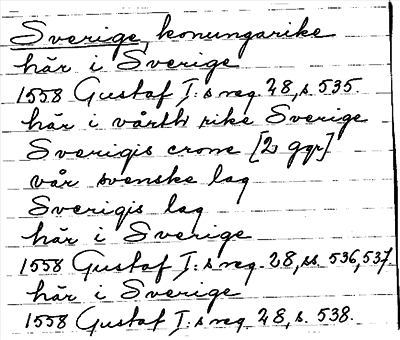 Sverige, konungarike
här i Sverige
1558 Gustaf I:s reg. 28, s. 535.
här i vårth rike Sverige
Sverigis crone [2 ggr]
vår svenske lag
Sverigis lag
här i Sverige
1558 Gustaf I:s reg. 28, ss. 536, 537.
här i Sverige
1558 Gustaf I:s reg. 28, s. 538.